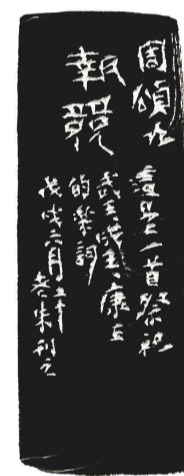 周頌九
執競
這是一首祭祀
武王成王、康王
的樂詞
戊戌六月
老朱刻之